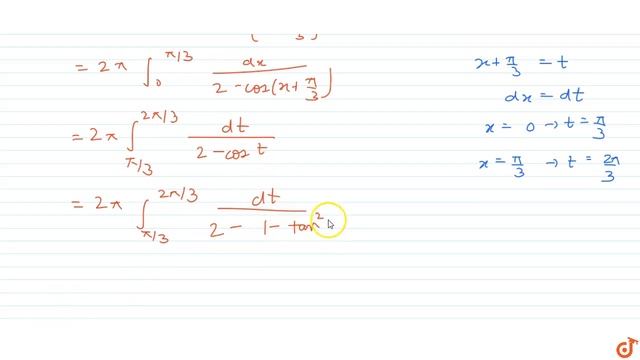 = 2π ∫₀^π/3 dx / 2 - cos(x + π/3)
= 2π ∫_π/3^2π/3 dt / 2 - cos t
= 2π ∫_π/3^2π/3 dt / 2 - 1 - tan²
x + π/3 = t
dx = dt
x = 0 → t = π/3
x = π/3 → t = 2π/3